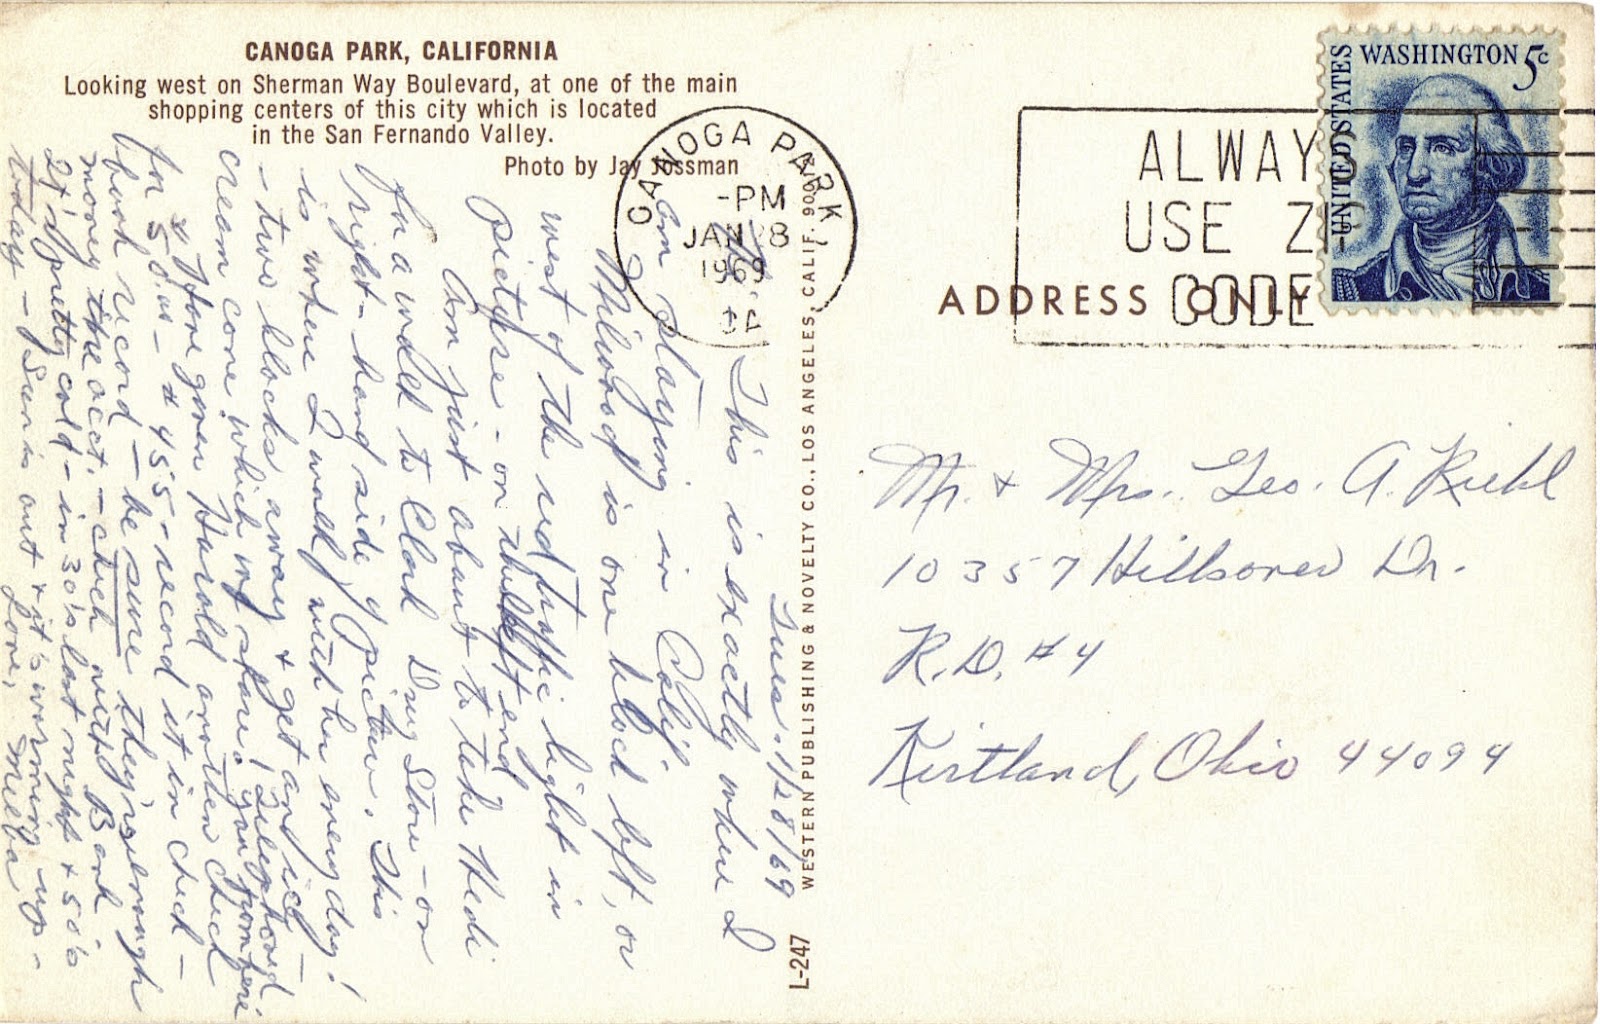 CANOGA PARK, CALIFORNIA
Looking west on Sherman Way Boulevard, at one of the main
shopping centers of this city which is located
in the San Fernando Valley.
Photo by Jay Jossman
CANOGA PARK, CALIF. 
-PM
JAN 28
1969
ALWAYS
USE ZIP
CODE
UNITED STATES
WASHINGTON 5c
ADDRESS ONLY
L-247 WESTERN PUBLISHING & NOVELTY CO., LOS ANGELES, CALIF.
Tues. 1/28/69
Hi! This is exactly where I
am staying in Calif.
Milwood is one block left, or
west of the red traffic light in
picture - on end
Am just about to take Hedi
for a walk to Clark Drug Store - on
right-hand side of picture. This
is where I walk with her every day!
- two blocks away & get an ice
cream cone which my stars! I telephoned you from here
Have given Harold a written check
for $50.00 - # 455 - record it in check
book record - be sure they're enough
money in the acct. - check with Bank
It's pretty cold - in 30's last night & 50's
today - Sun is out & it's warming up -
Love, Melba
Mr. & Mrs. Geo. A. Riehl
10357 Dr.
R.D. #4
Kirtland, Ohio 44094